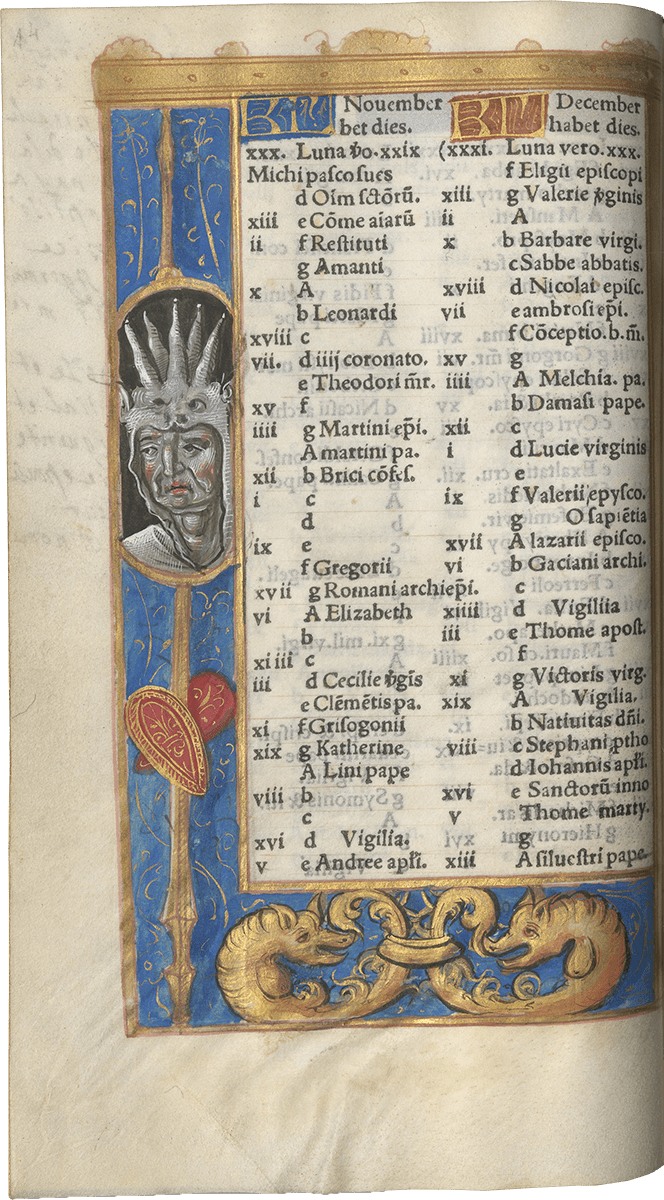 KL Nouember
bet dies.
xxx. Luna v̄o. xxix
Michi pasco sues
d Oīm sctōrū.
xiii e Cōme aīarū
ii f Restituti
g Amanti
x A
b Leonardi
xviii c
vii. d iiij coronato.
e Theodori m̄r.
xv f
iiii g Martini ep̄i.
A martini pa.
xii b Brici cōfes.
i c
d
ix e
f Gregorii
xvii g Romani archiep̄i.
vi A Elizabeth
b
xiiii c
iii d Cecilie v̄gis
e Clēmētis pa.
xi f Grisogonii
xix g Katherine
A Lini pape
viii b
c
xvi d Vigilia.
v e Andree apl̄i.
KL December
habet dies.
(xxxi. Luna vero. xxx.
f Eligii episcopi
xiii g Valerie v̄ginis
ii A
x b Barbare virgi.
c Sabbe abbatis.
xviii d Nicolai episc.
vii e ambrosi ep̄i.
f Cōceptio. b. m̄.
xv g
iiii A Melchia. pa.
b Damasi pape.
xii c
i d Lucie virginis
e
ix f Valerii, epysco.
g O sapiētia
xvii A lazarii episco.
vi b Gaciani archi.
c
xiiii d Vigiliia
iii e Thome apost.
f
xi g Victoris virg.
xix A Vigilia.
b Natiuitas dn̄i.
viii c Stephani ptho
d Iohannis apl̄i.
xvi e Sanctorū inno
v f Thome marty.
g
xiii A siluestri pape.